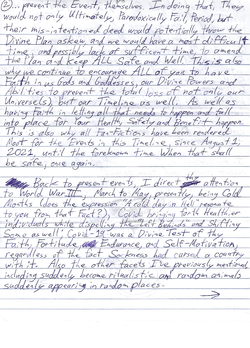 ②... prevent the Event, themselves. In doing that, They
would not only Ultimately, Paradoxically Fail, Period, but
their mis-intentioned deed would potentially throw the
Divine Plan askew and we would have a most difficult
time, and possibly lack of sufficient time, to amend
the Plan and Keep ALL Safe and Well. This is also
why we continue to encourage ALL of you to have
Faith in us Gods and Goddesses, our Divine Powers and
Abilities to prevent the Total loss of not only our
Universe(s) but our Timeline as well. As well as
having Faith in telling all that needs to happen and fall
into place, for your Totality Safety and Benefit happen.
This is also why all Fan-Fictions have been rendered
Moot for the Events in this Timeline, since August 1,
2021 until the foreknown time When that shall
be safe, once again.
Back to present events, I direct the attention
to World War III. March to May, presently, being Cold
Months (does the expression "A cold day in Hell" resonate
to you from that Fact?), Covid bringing forth Healthier
individuals while dispelling the Left Behinds and Shifting
Some as well; Covid-19 was a Divine Test of thy
Faith, Fortitude, Endurance, and Self-Motivation,
regardless of the fact Sickness had cursed a country
with it. Also the other facets I've previously mentioned
including suddenly become ritualistic and random animals
suddenly appearing in random places.